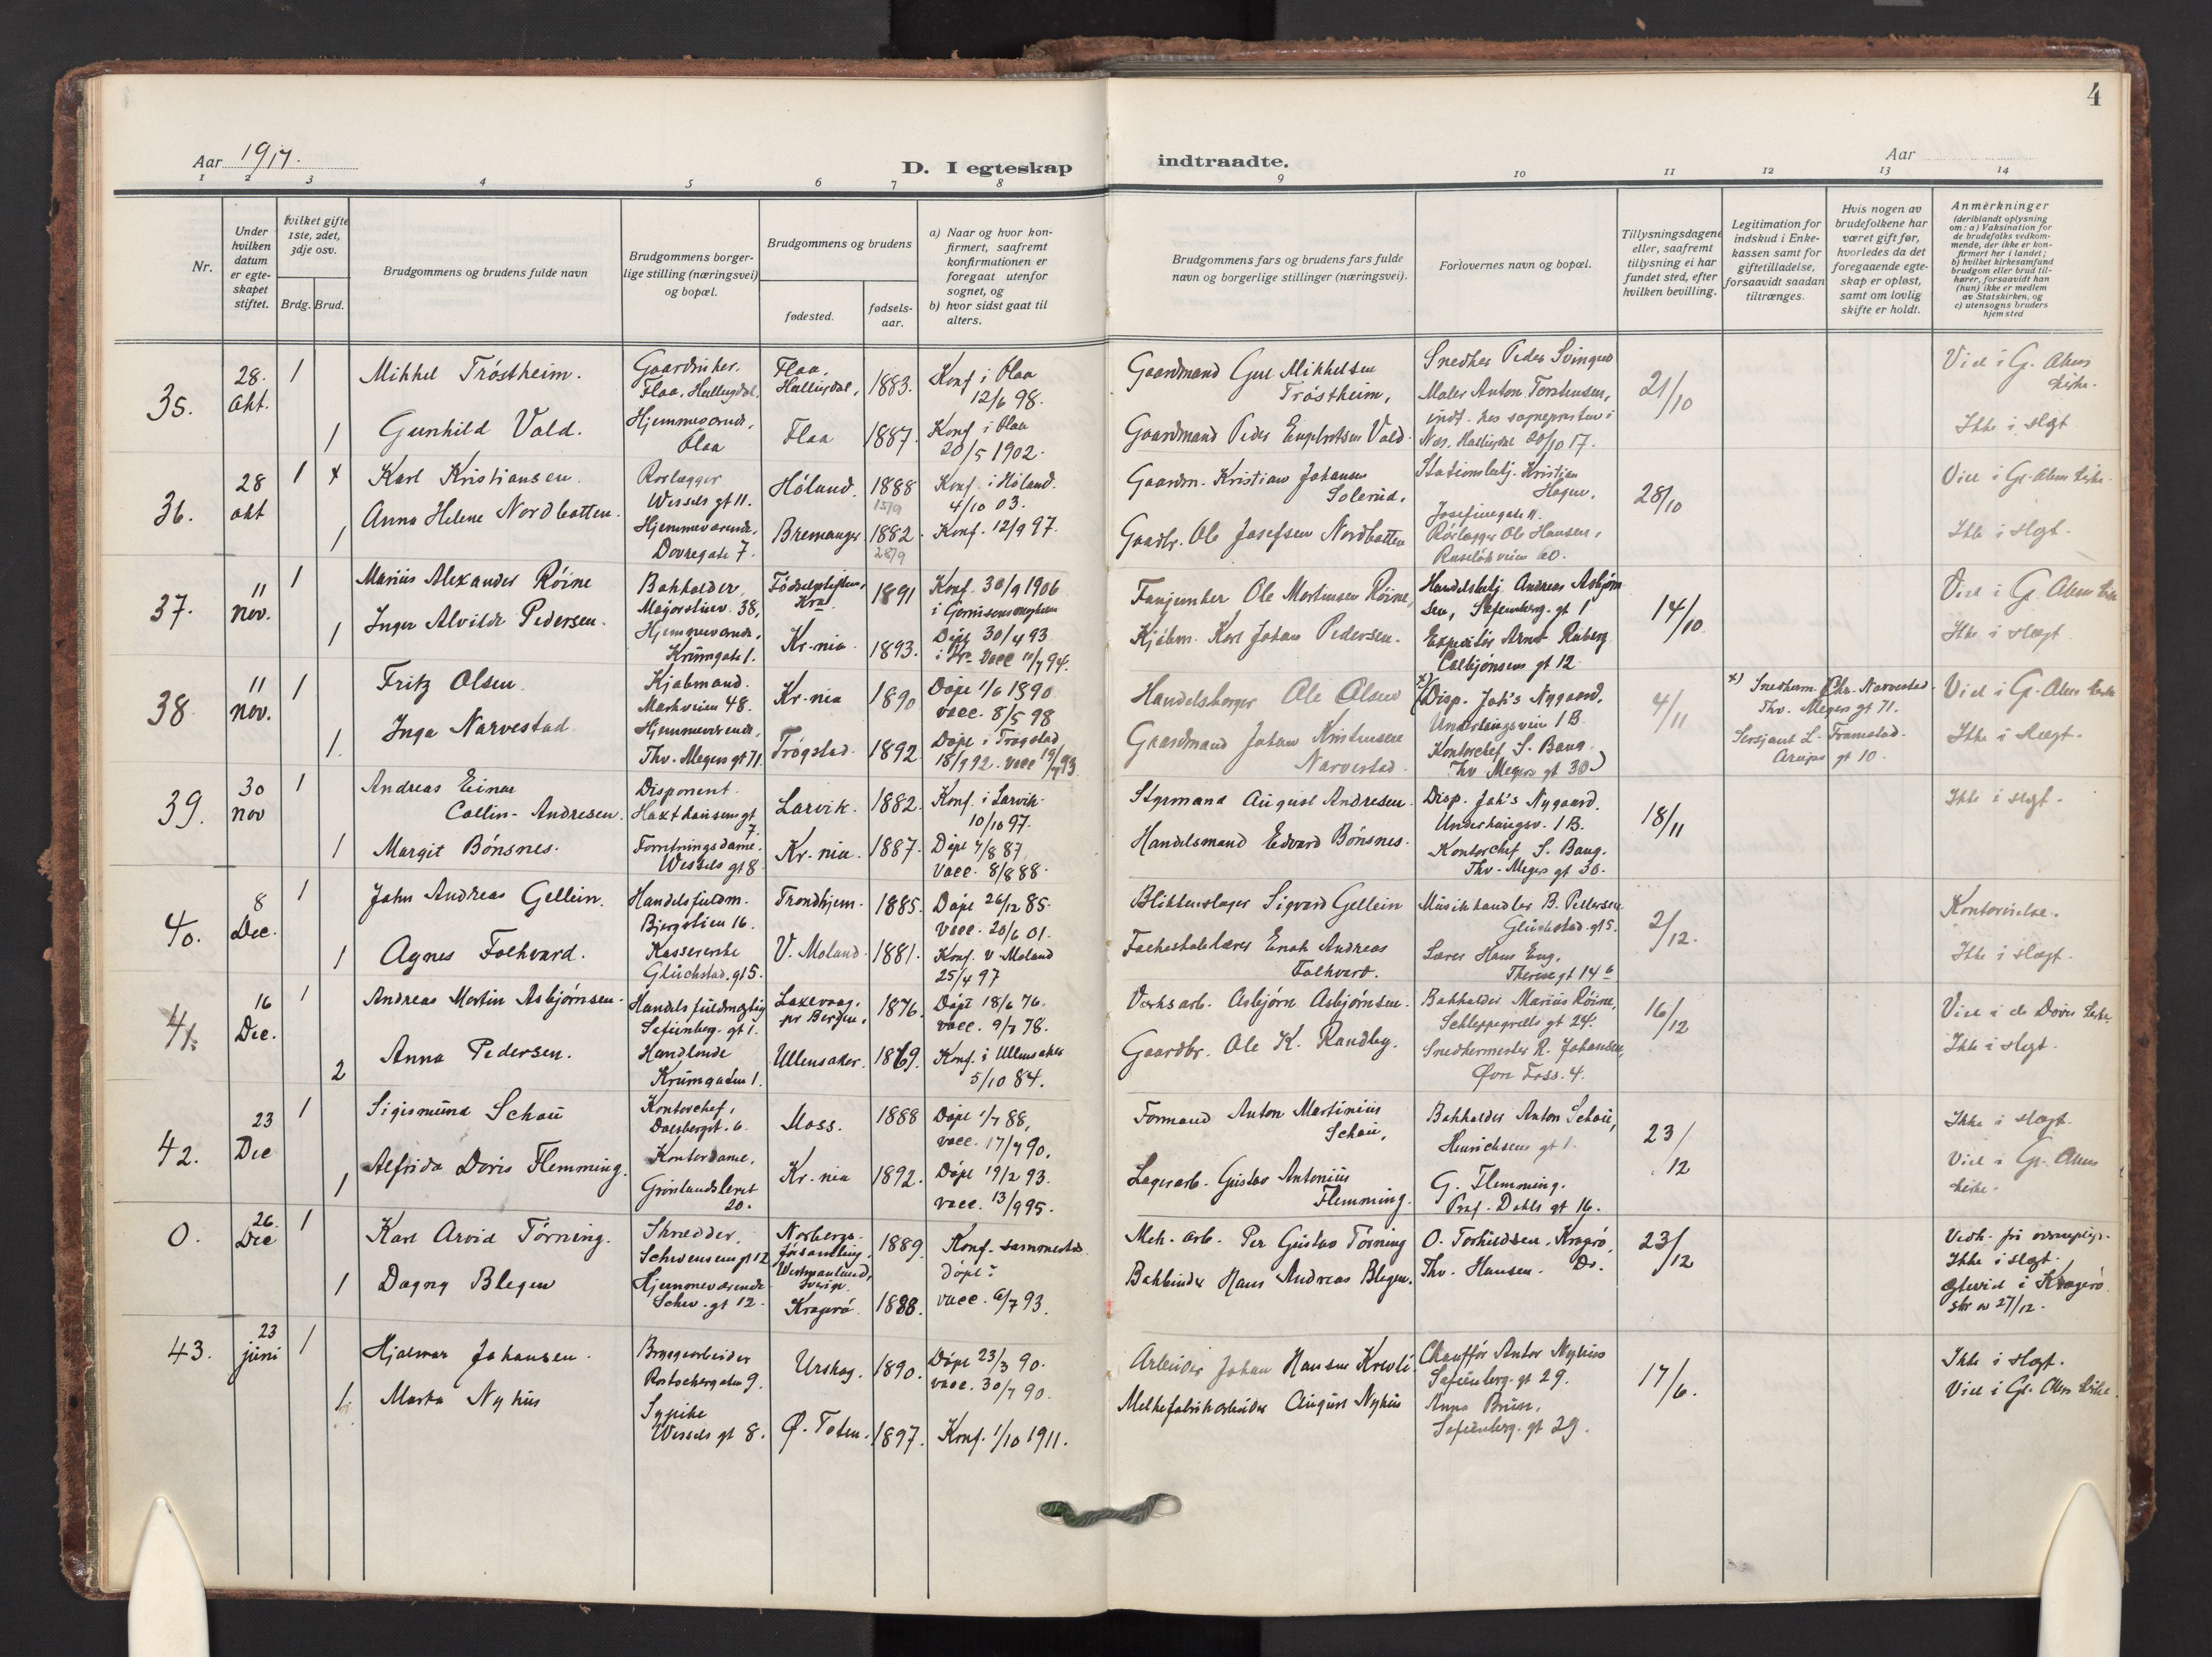 4
Aar 1917.
D. I egteskap indtraadte.
Aar
1 2 3 4 5 6 7 8 9 10 11 12 13 14
Nr.
Under hvilken datum er egteskapet stiftet.
hvilket gifte 1ste, 2det, 3dje osv.
Brdg. Brud.
Brudgommens og brudens fulde navn
Brudgommens borgerlige stilling (næringsvei) og bopæl.
Brudgommens og brudens
fødested.
fødselsaar.
a) Naar og hvor konfirmert, saafremt konfirmationen er foregaat utenfor sognet, og
b) hvor sidst gaat til alters.
Brudgommens fars og brudens fars fulde navn og borgerlige stillinger (næringsvei).
Forlovernes navn og bopæl.
Tillysningsdagene eller, saafremt tillysning ei har fundet sted, efter hvilken bevilling.
Legitimation for indskud i Enkekassen samt for giftetilladelse, forsaavidt saadan tiltrænges.
Hvis nogen av brudefolkene har været gift før, hvorledes da det foregaaende egteskap er opløst, samt om lovlig skifte er holdt.
Anmerkninger (deriblandt oplysning om: a) Vaksination for de brudefolks vedkommende, der ikke er konfirmert her i landet; b) hvilket kirkesamfund brudgom eller brud tilhører, forsaavidt han (hun) ikke er medlem av Statskirken, og c) utensogns bruders hjemsted
35.
28. Okt.
1
Mikkel Tröstheim.
Flaa, Hallingdal,
Flaa, Hallingdal,
1883.
Konf i Flaa
12/6 98.
Gaardmand Gul Mikkelsen Tröstheim,
Snedker Peder Svingen
Maler Anton Torstensen,
21/10
Viel i G. Akers kirke.
1
Gunhild Vold.
Hjemmeværende, Flaa
Flaa
1887.
Konf i Flaa
20/5 1902.
Gaardmand Peder Vold.
indt. hos sogneprsten i
Nes, Hallingdal 20/10 17.
Ikke i slegt
36.
28 okt
1
Karl Kristiansen.
Rørlegger
Wessels gt 11.
Höland.
1888
15/9
Konf. i Höland.
4/10 03.
Gaardm. Kristian Johansen Solerud,
Stationsbetj. Kristjan Hagen,
Josefinegate 11.
28/10
Viel i Gl. Akers kirke.
1
Anna Helene Nordbotten.
Hjemmeværende,
Dovregate 7.
Bremanger
1882.
28/9
Konf. 12/9 97.
Gaardbr. Ole Josefsen Nordbotten
Rörlegger Ole Hansen,
Ruselökveien 60.
Ikke i slegt.
37.
11 nov.
1
Marius Alexander Röine
Bokholder,
Majorstuev. 38,
Födselsstiftelsen, Kra
1891
Konf. 30/9 1906
i Garnisonsmenigheten
Fanjunker Ole Mortensen Röine,
Handelsbetj. Andreas Asbjörnsen, Sofienberg. gt 1
14/10
Viel i G. Akers kirke
1
Inger Alvilde Pedersen.
Hjemmeværende,
Krumgate 1.
Kr.nia
1893.
Döpt 30/4 93
i Kr. Vacc 10/7 94.
Kjöbm. Karl Johan Pedersen.
Expeditör Arnt Ruberg
Colbjönsens gt 12
Ikke i slegt.
38
11 nov.
1
Fritz Olsen.
Kjøbmand.
Markveien 48.
Kr.nia
1890
Döpt 1/6 1890
vacc. 8/5 98
Handelsborger Ole Olsen
x) (Disp. Joh's Nygaard.
Underhaugsvein 1B
4/11
x) Snedkerm. Chr. Narvestad.
Thv. Meyers gt 71.
Viel i G. Akers kirke
1.
Inga Narvestad
Hjemmeværende,
Thv. Meyers gt 71.
Trögstad.
1892
Döpt i Trögstad
18/9 92. vacc 19/7 93
Gaardmand Johan Kristensen Narvestad.
Kontorchef S. Baug
Thv Meyers gt 30)
Sersjant L. Framstad.
Arups gt 10.
Ikke i slegt.
39.
30 nov
1
Andreas Einar
Collin-Andresen.
Disponent.
Haxthausens gt 7.
Larvik.
1882.
Konf. i Larvik
10/10 97.
Styrmand August Andresen.
Disp. Joh's Nygaard.
Underhaugsv. 1B.
18/11
Ikke i slegt.
1
Margit Bönsnes.
Forretningsdame.
Wessels gt 8
Kr.nia.
1887.
Döpt 7/8 87
vacc. 8/8 88.
Handelsmand Edvard Bönsnes.
Kontorchef S. Baug.
Thv. Meyers gt 30.
40.
8 Dec.
1
John Andreas Gellein.
Handelsfuldm.
Bjergstien 16.
Trondhjem.
1885.
Döpt 26/12 85.
vacc. 20/6 01.
Blikkenslager Sigvard Gellein
Musikhandler B. Pettersen
Glückstad. gt 5.
2/12.
Kontorvielse.
1
Agnes Folkvard.
Kassererske
Glückstad. gt 5.
V. Moland.
1881.
Konf. V. Moland
25/4 97
Folkeskolelærer Enok Andreas Folkvard.
Lærer Hans Eng,
Therese gt 14 b
Ikke i slegt.
41.
16 Dec.
1
Andreas Martin Asbjörnsen.
Handelsfuldmægtig
Sofienberg. gt 1.
Laxevaag, pr Bergen,
1876.
Döpt 18/6 76.
vacc. 9/7 78.
Verksarb. Asbjörn Asbjörnsen.
Bokholder Marius Röine,
Schleppegrells gt 24.
16/12
Viel i de Döves kirke.
2
Anna Pedersen.
Handlende
Krumgaten 1.
Ullensaker.
1869.
Konf. i Ullensaker
5/10 84.
Gaardbr. Ole K. Randby.
Snedkermester R. Johansen,
Övre Foss. 4.
Ikke i slegt.
42.
23 Dec
1
Sigismund Schau
Kontorchef,
Dalsbergst. 6.
Moss.
1888
Döpt 1/7 88,
vacc. 17/7 90.
Formand Anton Martinius Schau,
Bokholder Anton Schau,
Henrichsens gt 1.
23/12
Ikke i slegt.
1
Alfrida Doris Flemming.
Kontordame,
Grönlandsleret 20.
Kr.nia
1892.
Döpt 19/2 93.
vacc. 13/9 95.
Lagerarb. Gustav Antonius Flemming.
G. Flemming.
Prof. Dahls gt 16.
Viel i Gl. Akers kirke.
0.
26. Dec
1
Karl Arvid Törning.
Skredder,
Schwensens gt 12
Norbergs församling, Westmanland, Sverige.
1889.
Konf. sammesteds
Mek. arb. Per Gustav Törning
O. Torkildsen, Kragerö,
23/12
Ikke i slegt.
1
Dagny Blegen
Hjemmeværende
Schw. gt 12.
Kragerö.
1888.
döpt:
vacc. 6/7 93.
Bokbinder Hans Andreas Blegen.
Thv. Hansen. Do.
Egtevid i Kragerö
skr av 27/12.
43.
23 juni
1
Hjalmar Johansen.
Bryggearbeider
Rostockergaten 9.
Urskog.
1890.
Döpt 23/3 90.
vacc. 30/7 90.
Arbeider Johan Hansen
Chaufför Anton Nyhus
Sofienberg. gt 29.
17/6.
Ikke i slegt.
1.
Marta Nyhus
Sypike
Wessels gt 8.
Ø. Toten.
1897.
Konf. 1/10 1911.
Melkefabrikarbeider August Nyhus
Anna Bruun,
Sofienberg. gt 29.
Viel i Gl. Akers kirke.